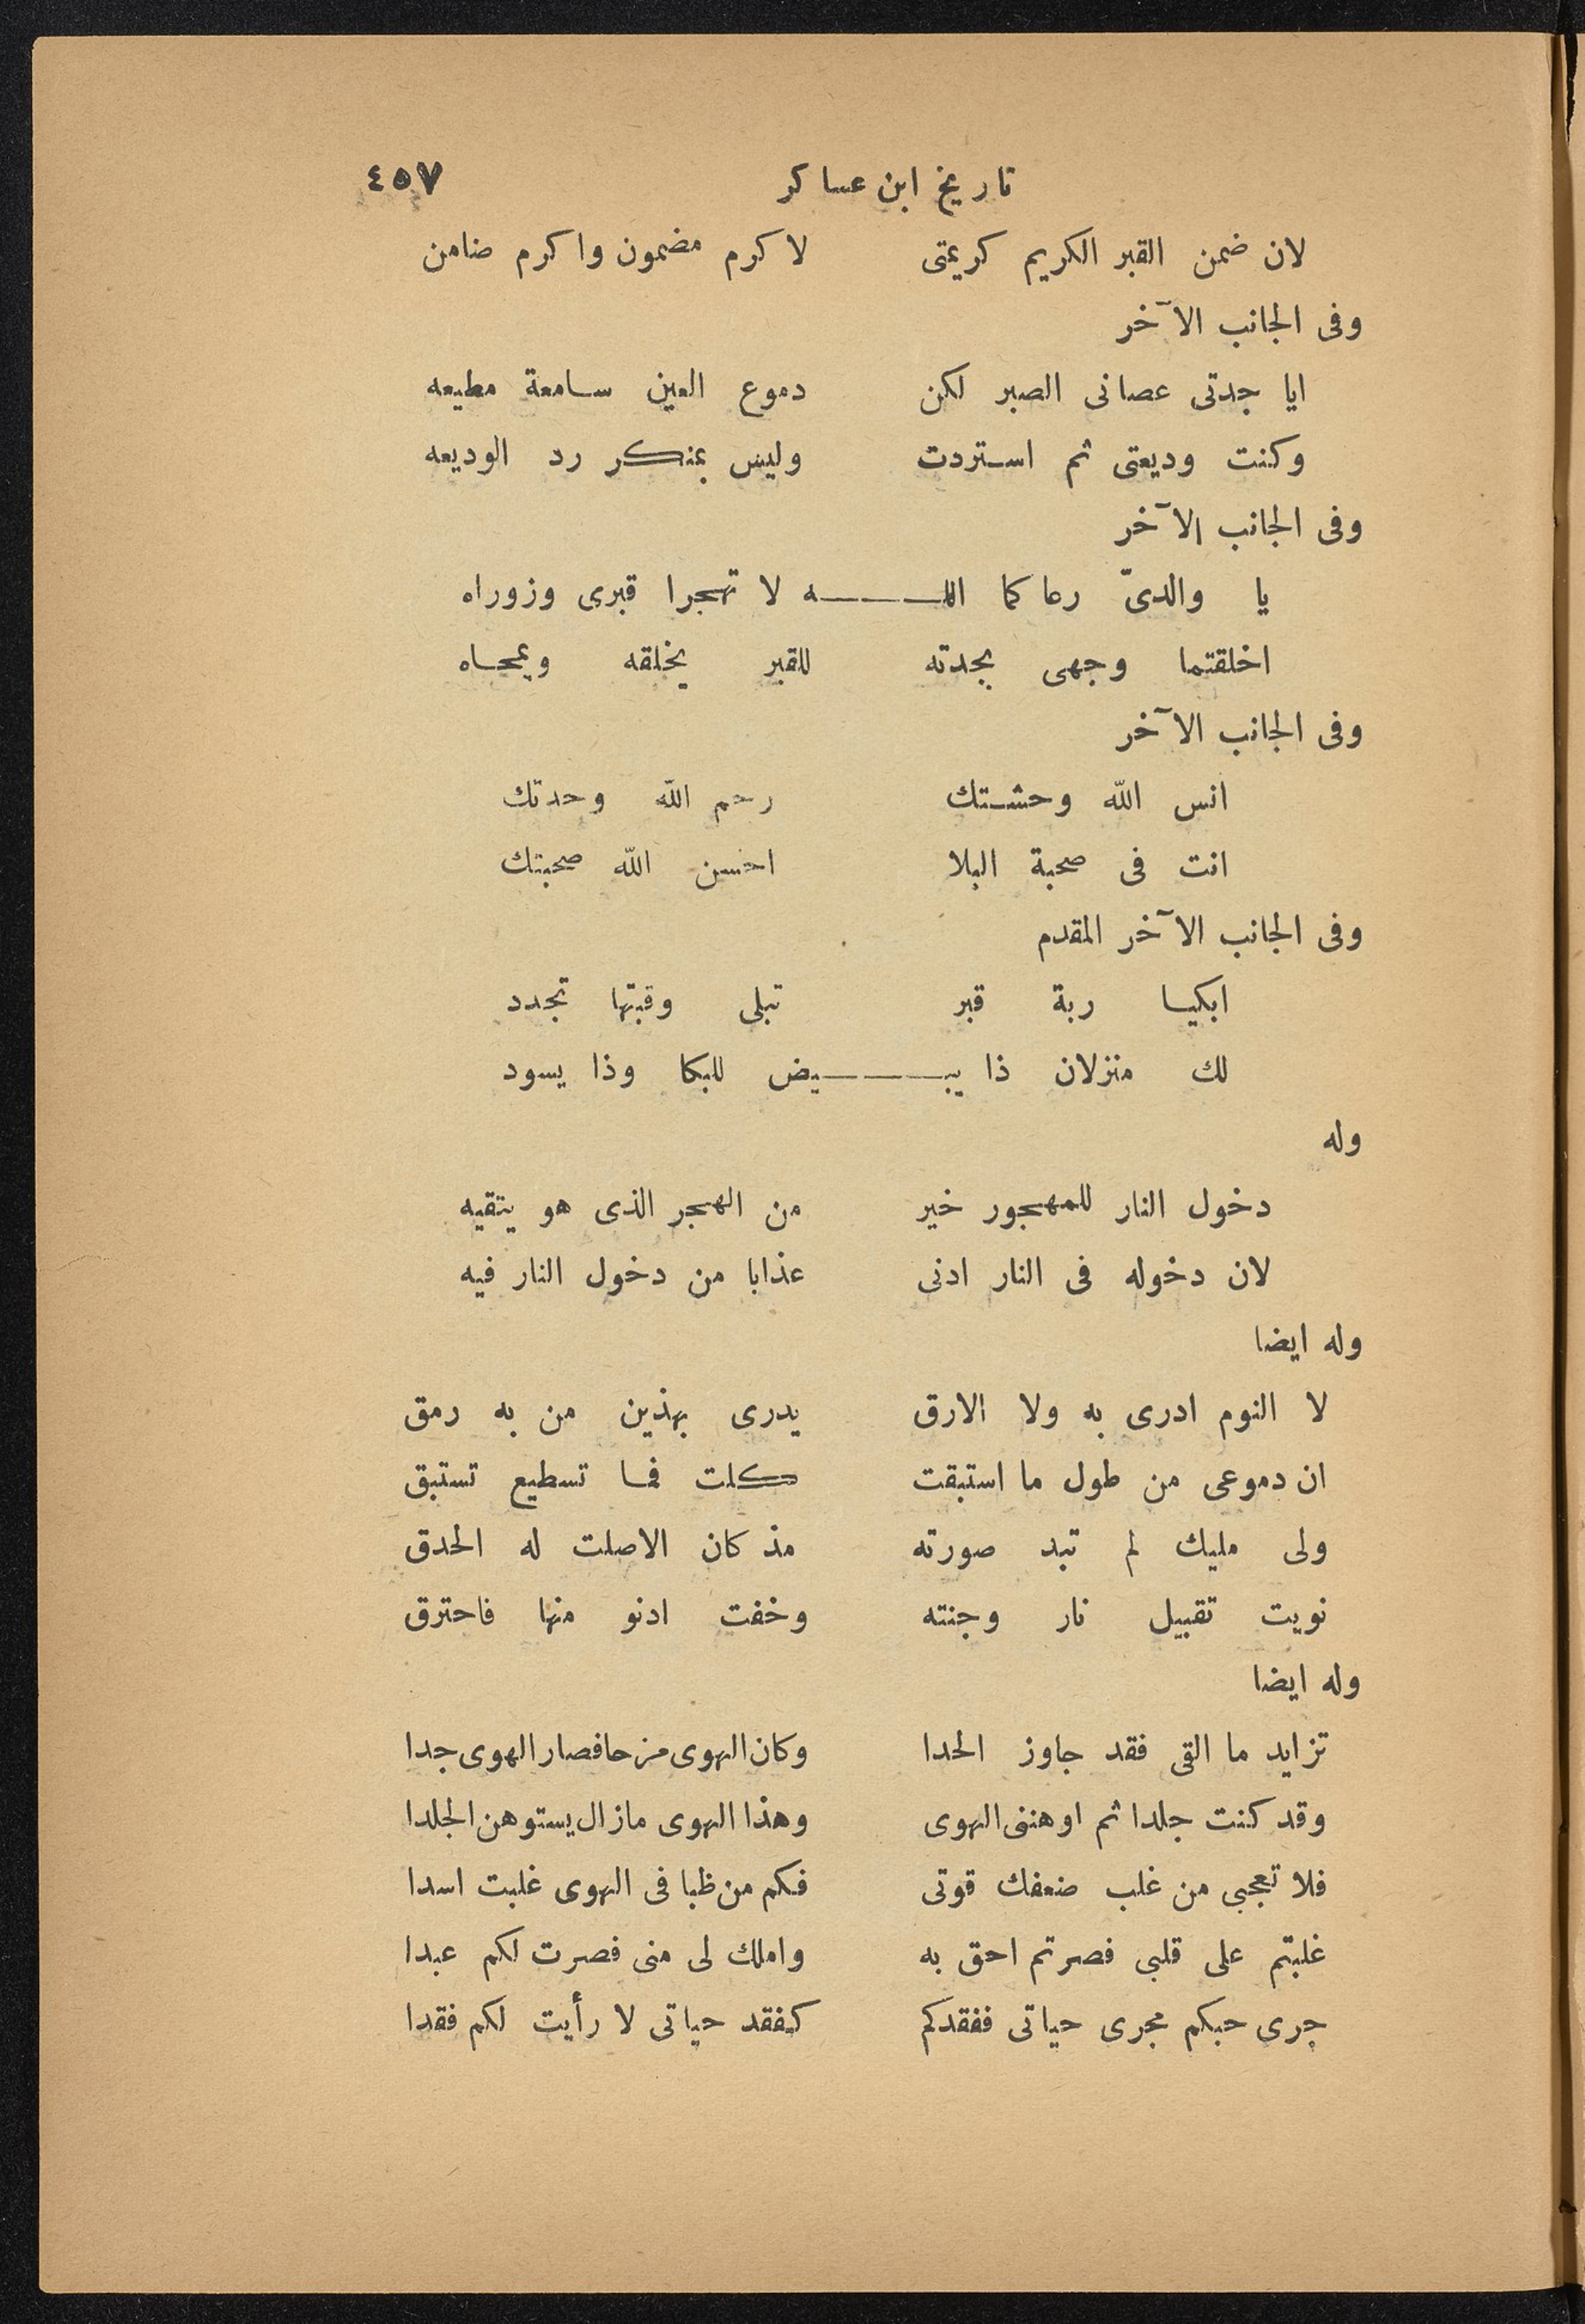 تاريخ ابن عساكر ٤٥٧
لان ضمن القبر الكريم كريمتى لا كرم مضمون واكرم ضامن
وفى الجانب الآخر
ايا جدتى عصانى الصبر لكن دموع العين سامعة مطيعه
وكنت وديعتى ثم استردت وليس بمنكر رد الوديعه
وفى الجانب الآخر
يا والدىّ رعاكما اللـــــــه لا تهجرا قبرى وزوراه
اخلقتما وجهى بجدته للقبر يخلقه ويمحاه
وفى الجانب الآخر
انس الله وحشتك رحم الله وحدتك
انت فى صحبة البلا احسن الله صحبتك
وفى الجانب الآخر المقدم
ابكيا ربة قبر تبلى وقبتها تجدد
لك منزلان ذا يبـــــــيض للبكا وذا يسود
وله
دخول النار للمهجور خير من الهجر الذى هو يتقيه
لان دخوله فى النار ادنى عذابا من دخول النار فيه
وله ايضا
لا النوم ادرى به ولا الارق يدرى بهذين من به رمق
ان دموعى من طول ما استبقت كلت فما تسطيع تستبق
ولى مليك لم تبد صورته مذ كان الاصلت له الحدق
نويت تقبيل نار وجنته وخفت ادنو منها فاحترق
وله ايضا
تزايد ما القى فقد جاوز الحدا وكان الهوى مزحا فصار الهوى جدا
وقد كنت جلدا ثم اوهننى الهوى وهذا الهوى مازال يستوهن الجلدا
فلا تعجبى من غلب ضعفك قوتى فكم من ظبا فى الهوى غلبت اسدا
غلبتم على قلبى فصرتم احق به واملك لى منى فصرت لكم عبدا
جرى حبكم مجرى حياتى ففقدكم كفقد حياتى لا رأيت لكم فقدا